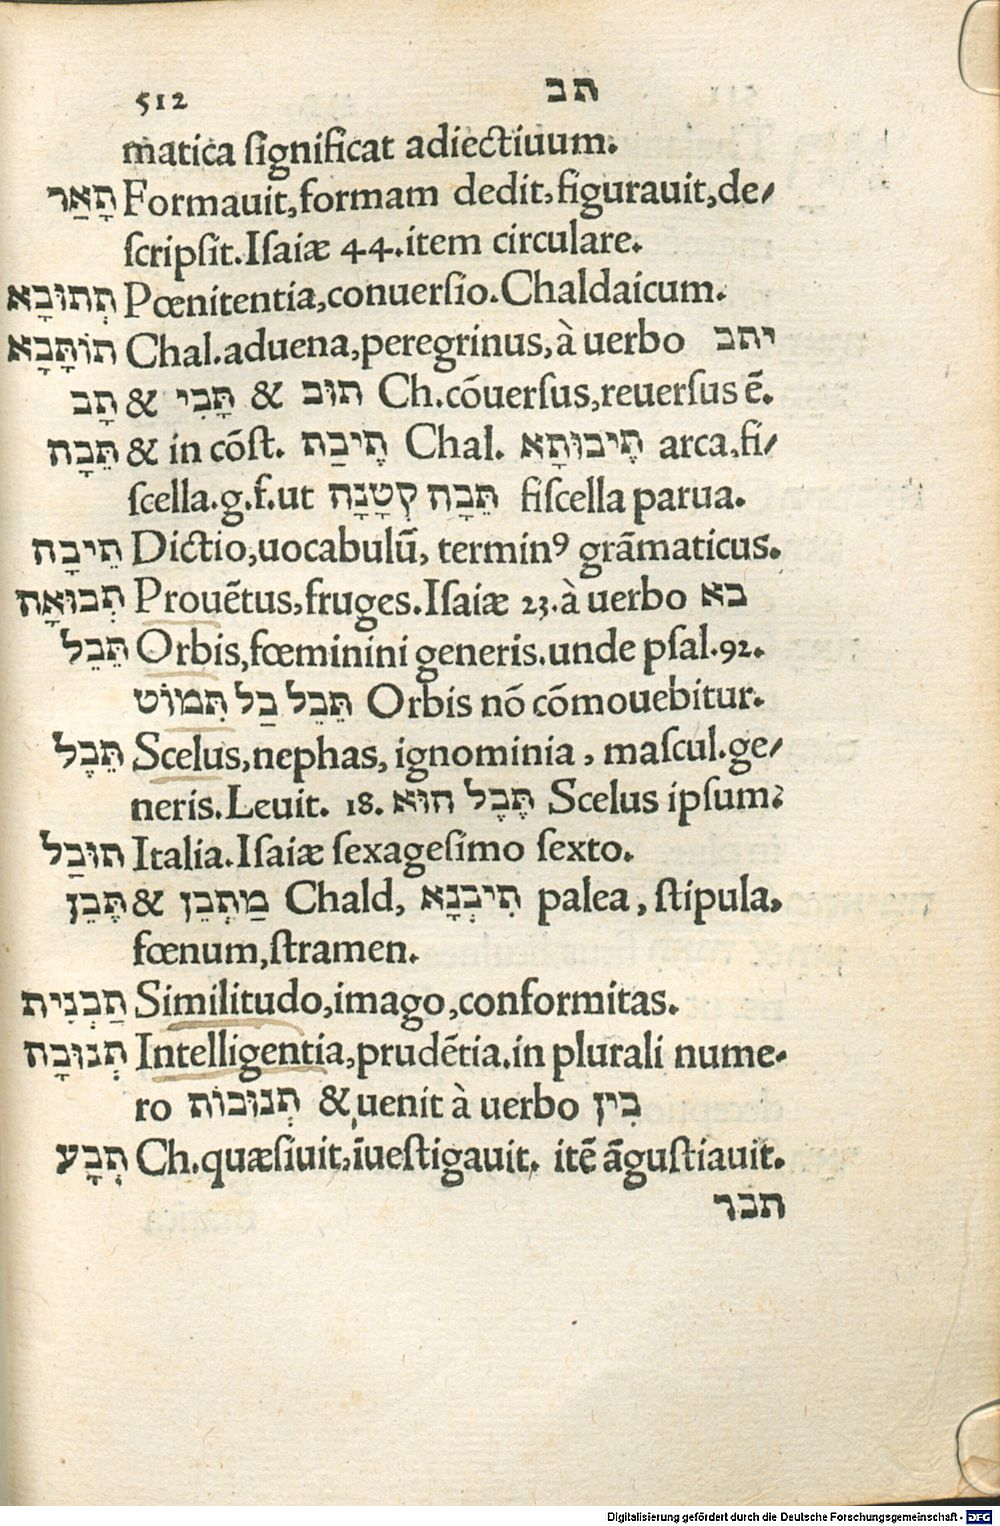 512 תב
matica ſignificat adiectiuum.
תָאַר Formauit,formam dedit,figurauit,de/
ſcripſit.Iſaiæ 44.item circulare.
תְתוּבָא Pœnitentia,conuerſio.Chaldaicum.
תוֹתָּבָא Chal.aduena,peregrinus,à uerbo יתב
תָּב & תָּבִי & תוּב Ch.cõuerſus,reuerſus ẽ.
תֵּבָה & in cõſt. תֵּיבַת Chal. תֵּיבוּתָא arca,fi/
ſcella.g.f.ut תֵּבָה קְטָנָה fiſcella parua.
תֵיבָה Dictio,uocabulũ, terminꝰ grãmaticus.
תְבוּאָה Prouẽtus,fruges.Iſaiæ 23.à uerbo בא
תֵּבֵל Orbis,fœminini generis.unde pſal.92.
תֵּבֵל בַל תִּמוֹט Orbis nõ cõmouebitur.
תֵּבֶל Scelus,nephas, ignominia , maſcul.ge/
neris.Leuit. 18. תֶּבֶל הוּא Scelus ipſum.
תוּבַל Italia.Iſaiæ ſexageſimo ſexto.
תֶּבֶן & מַתְבֵּן Chald, תִיבְנָא palea , ſtipula,
fœnum,ſtramen.
תַבְנִית Similitudo,imago,conformitas.
תְבוּנָה Intelligentia,prudẽtia.in plurali nume-
ro תְבוּנוֹת & uenit à uerbo בִין
תְבָע Ch.quæſiuit,ĩueſtigauit. itẽ ãguſtiauit.
תבר
Digitalisierung gefördert durch die Deutsche Forschungsgemeinschaft - DFG